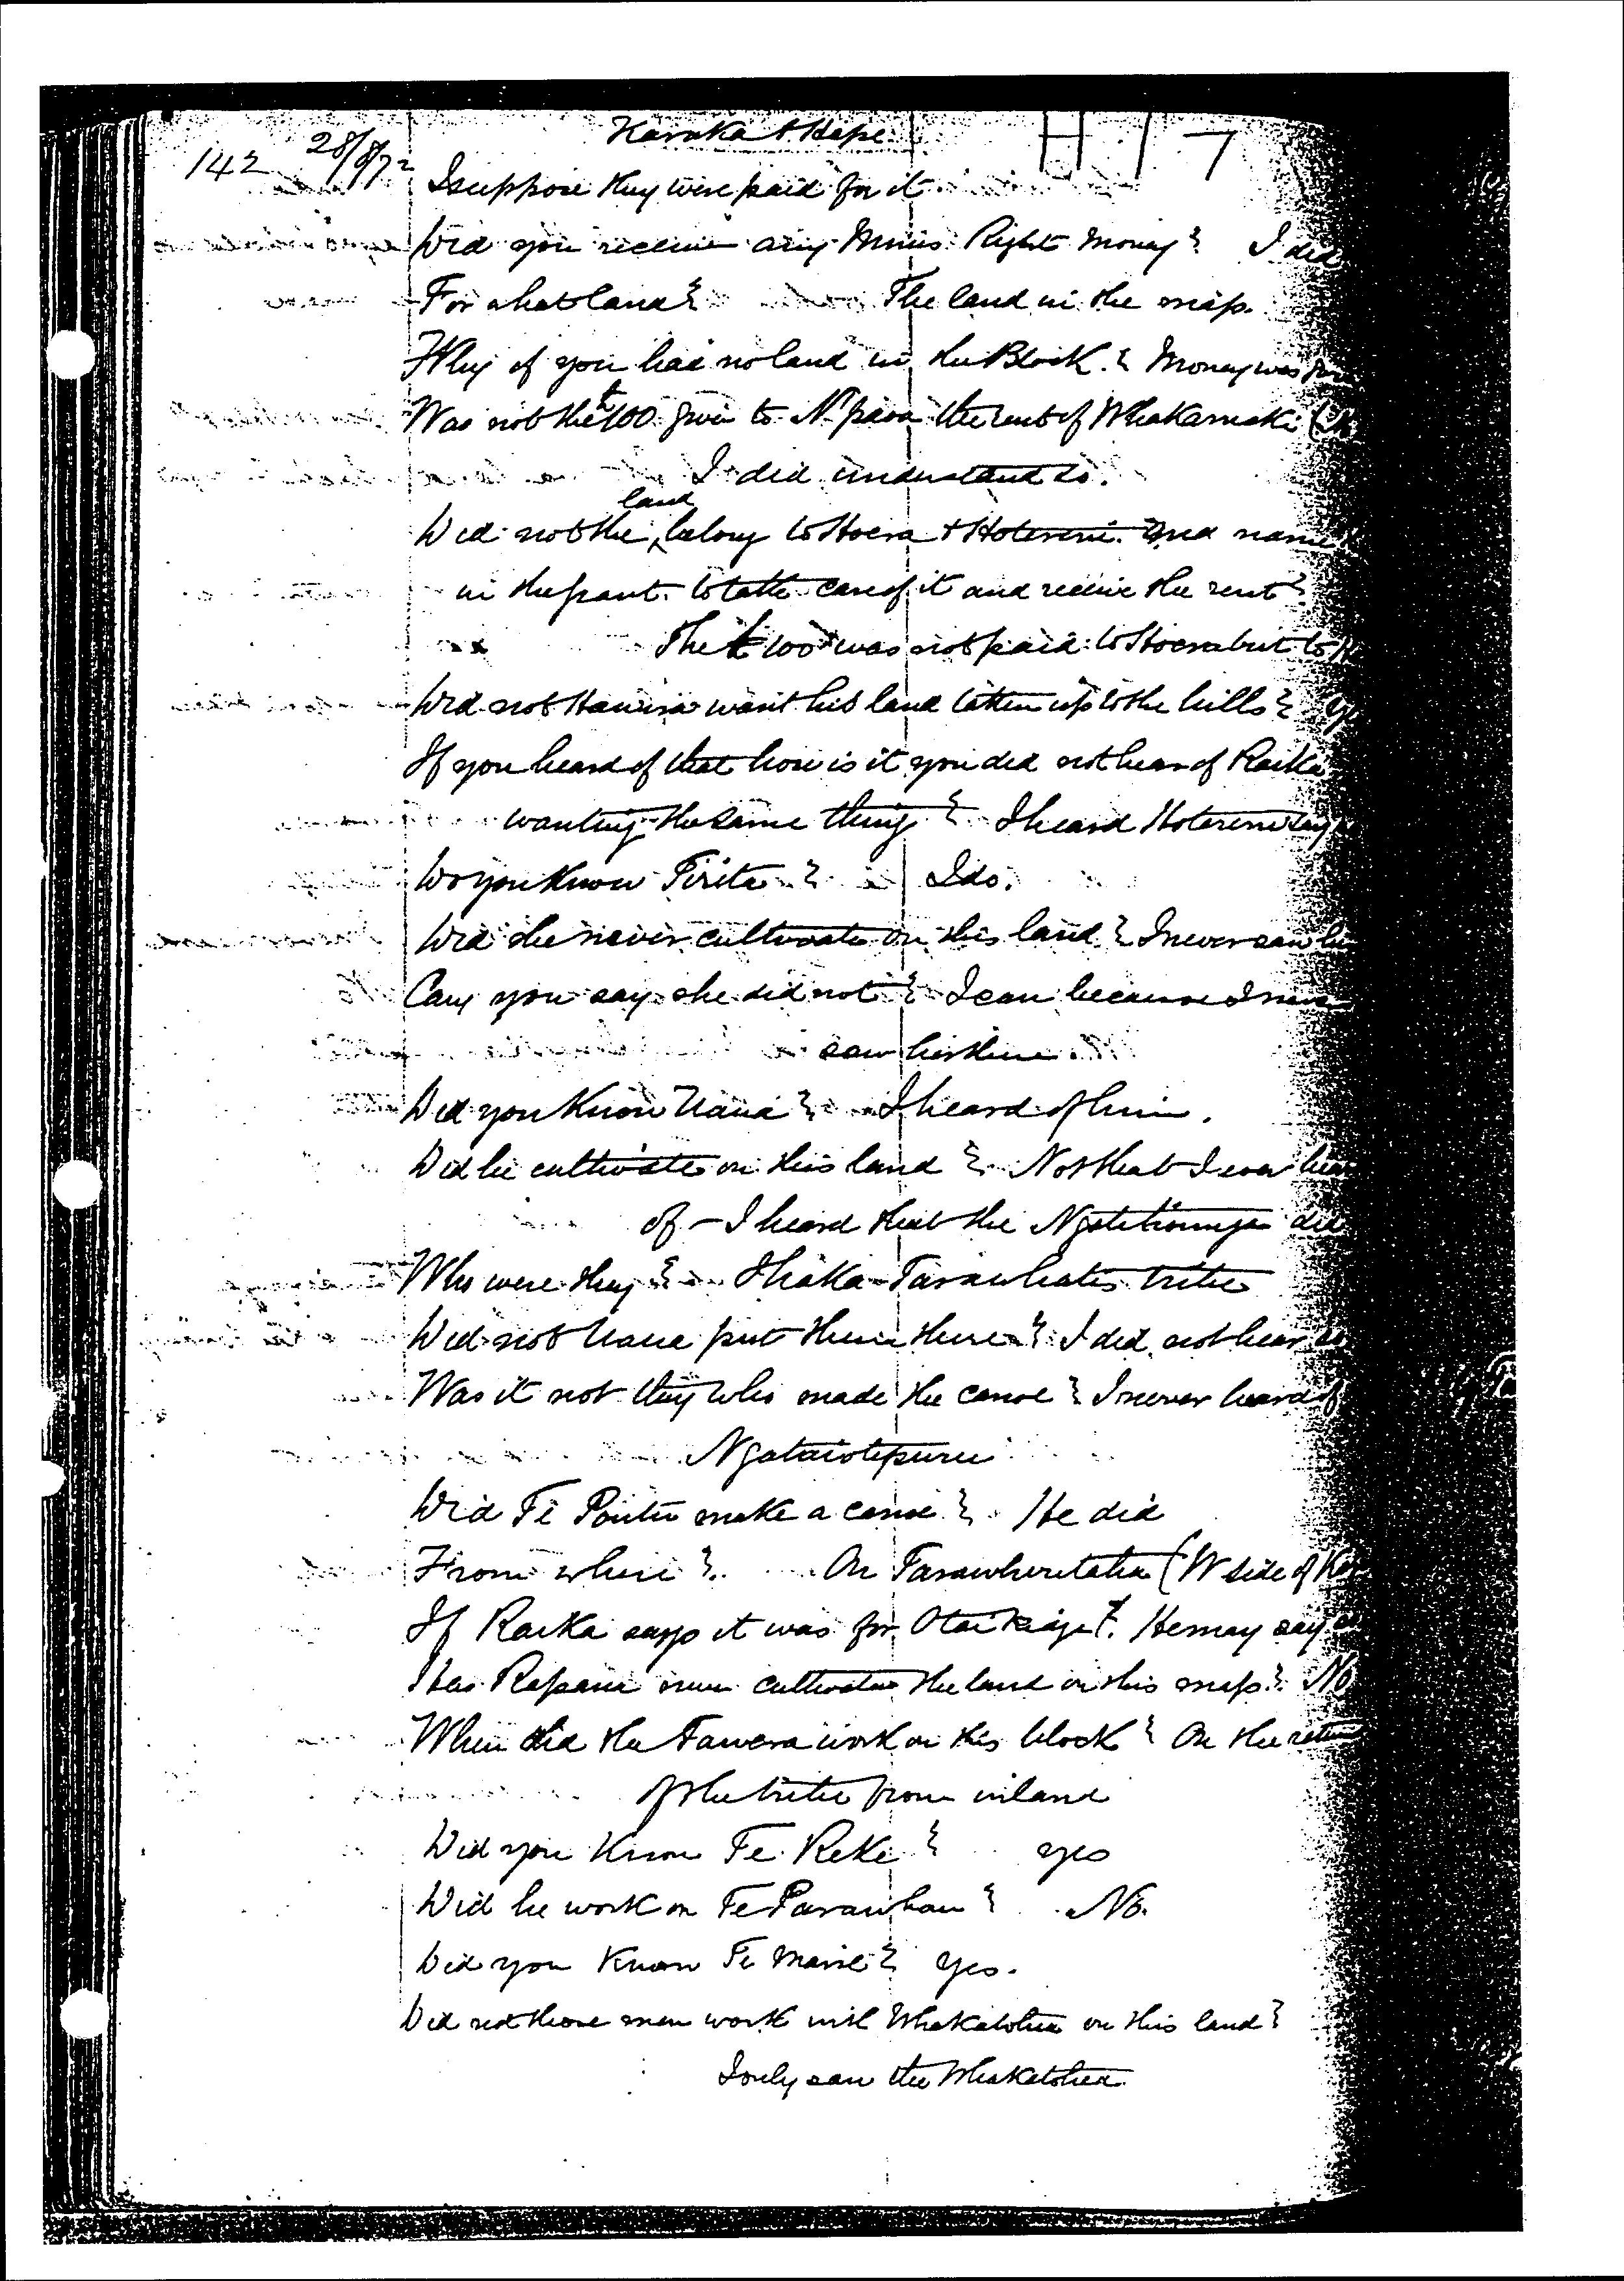 Haraka & Hape
H 1 7
142 28/8/72
I suppose they were paid for it
Did you receive any Miners Right money? I did
For what land? The land in the map.
Why if you had no land in the Block? Money was
Was not the £100 given to Npaoa the rent of Whakamaki
I did understand so.
Did not the land belong to Hoera & Hotereni and name
in the grant to take care of it and receive the rent?
The £100 was not paid to Hoera but to
Did not Hauina want his land taken up to the hills?
If you heard of that how is it you did not hear of Raika
wanting the same thing? I heard Hotereni say
Do you know Tirita? I do.
Did she never cultivate on this land? I never saw
Can you say she did not? I can because I never
saw her there.
Did you know Uaua? I heard of him.
Did he cultivate on this land? Not that I ever
of - I heard that the Ngatihounga did
Who were they? Ihaka Tarawhatis tribe
Did not Uaua put them there? I did not hear
Was it not they who made the canoe? I never heard of
Ngataiotepuru
Did Te Pouto make a canoe? He did
From where? On (W side of
If Raika says it was for He may say
Has Rapana never cultivated the land in this map? No
When did the Tawera work on this block? On the return
of the tribe from inland
Did you know Te Reke? yes
Did he work on Te Parawhau? No.
Did you know Te Maire? Yes.
Did not those men work with Whakatohea on this land?
I only saw the Whakatohea